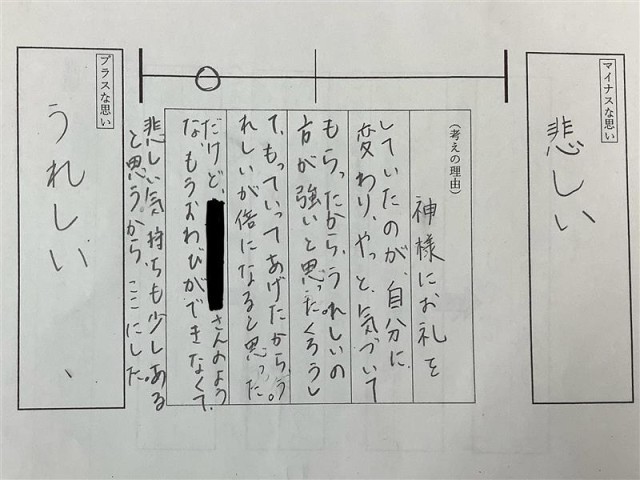 マイナスな思い
悲しい
(考えの理由)
神様にお礼を
していたのが、自分に
変わり、やっと、気づいて
もらったから、うれしいの
方が強いと思った。くろうし
て、もっていってあげたから、う
れしいが倍になると思った。
だけど、さんのよう
な、もう、おわびができなくて、
悲しい気持ちも少しある
と思うから、ここにした。
プラスな思い
うれしい、